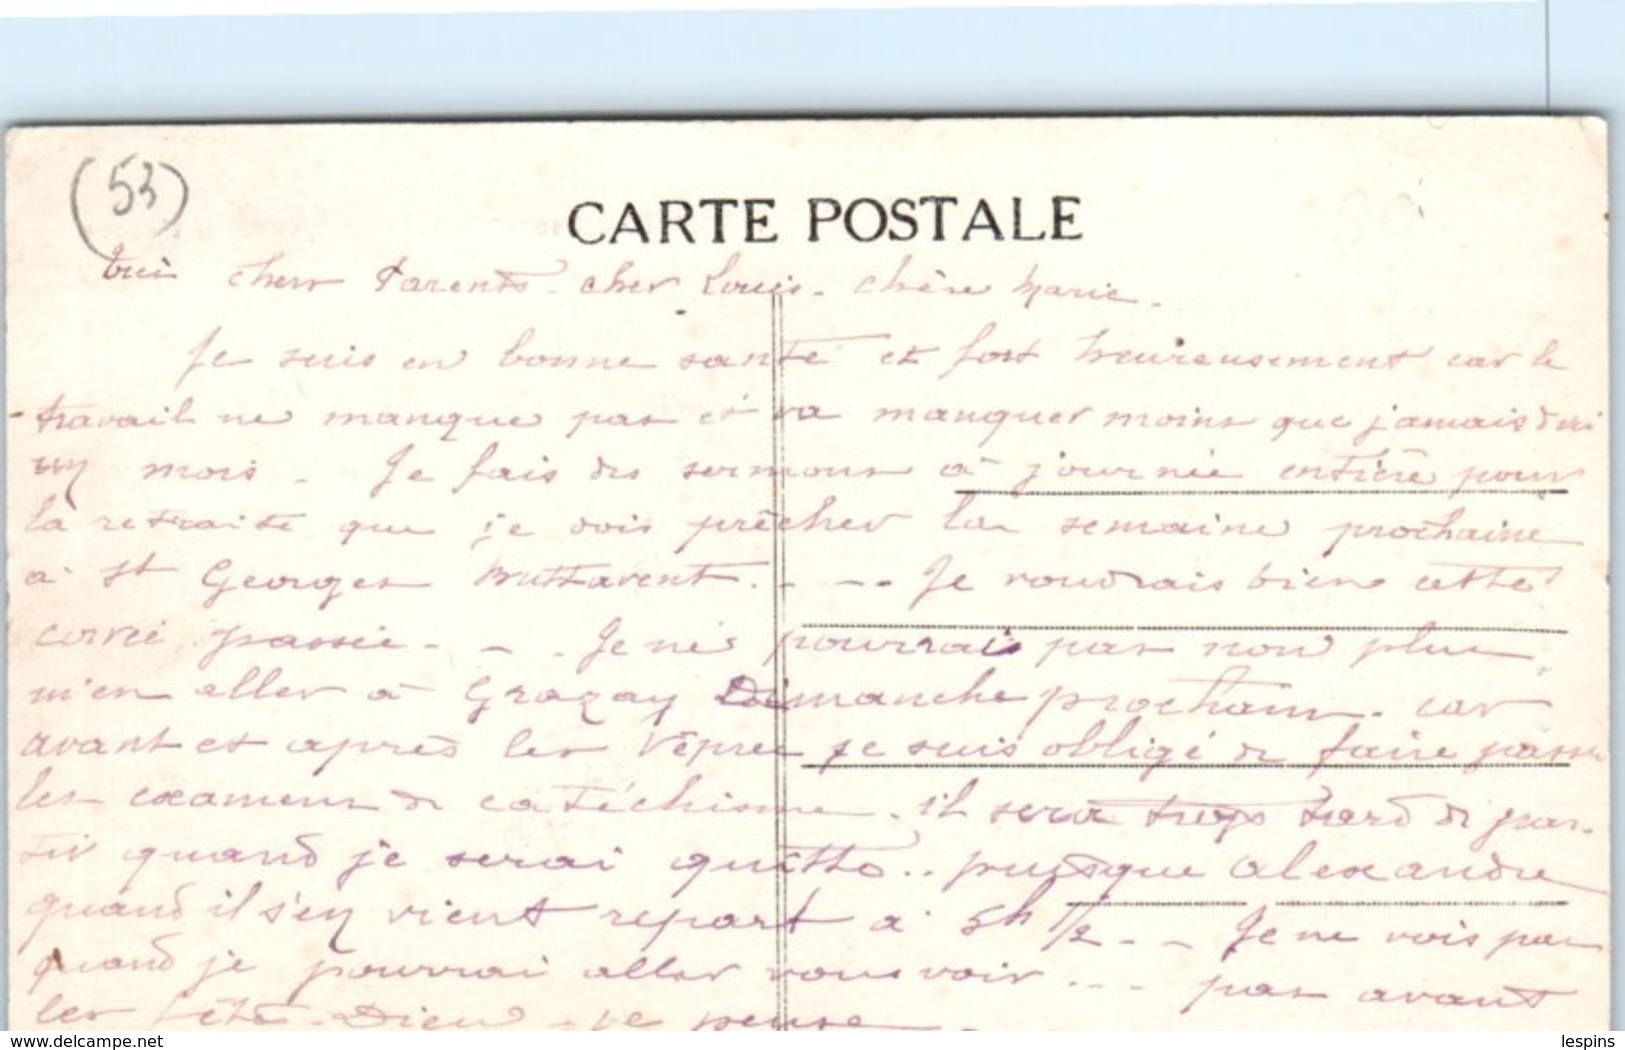 (53)
CARTE POSTALE
chers Parents - cher Louis - chère Marie -
Je suis en bonne santé et fort heureusement car le
travail ne manque pas et va manquer moins que jamais d'ici
un mois - Je fais des sermons à journée entière pour
la retraite que je dois prêcher la semaine prochaine
à St Georges Buttavent. - - - Je voudrais bien cette
corvée passée - - - Je ne pourrais pas non plus
m'en aller à Grazay Dimanche prochain - car
avant et après les Vêpres je suis obligé de faire passer
les examens de catéchisme - il sera trop tard de par-
tir quand je serai quitte .. puisque Alexandre
quand il s'en vient repart à 5h 1/2 - - Je ne vois pas
quand je pourrai aller vous voir ... pas avant
les fêtes - Dieu - je pense -
delcampe.net
lespins